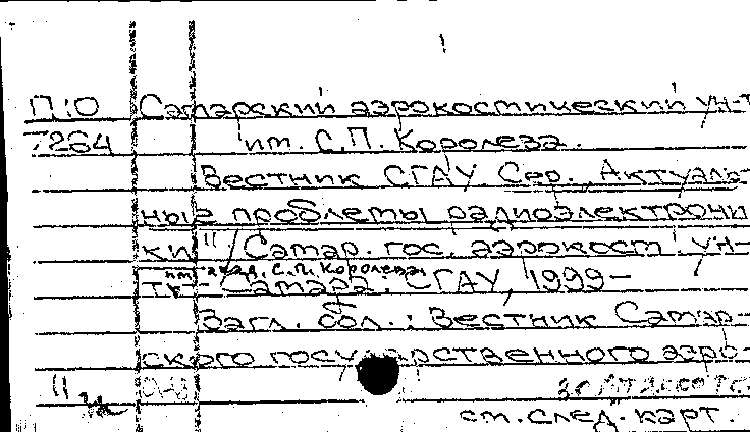 П:О Самарский аэрокосмический ун-т
7264 им. С.П. Королева.
Вестник СГАУ. Сер. Актуаль-
ные проблемы радиоэлектрони
ки" / Самар. гос. аэрокосм. ун-
им. акад. С.П. Королева
т.- Самара: СГАУ, 1999-
Загл. обл.: Вестник Самар-
ского государственного аэро-
см. след. карт.